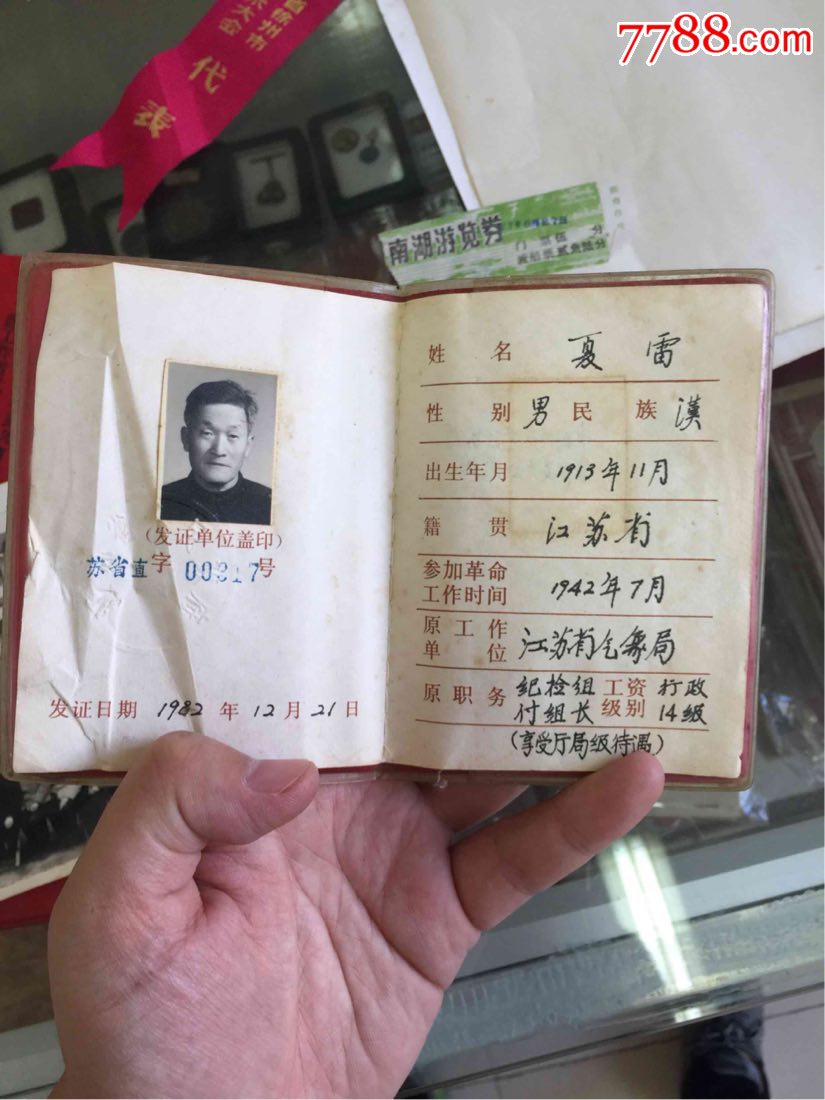 7788.com
省徐州市
大会
代表
南湖游览券
门票伍分
姓名 夏雷
性别 男 民族 漢
出生年月 1913年11月
籍贯 江苏省
参加革命
工作时间 1942年7月
原工作
单位 江苏省气象局
原职务 纪检组 工资 行政
付组长 级别 14级
(享受厅局级待遇)
(发证单位盖印)
苏省直字00317号
发证日期 1982年12月21日